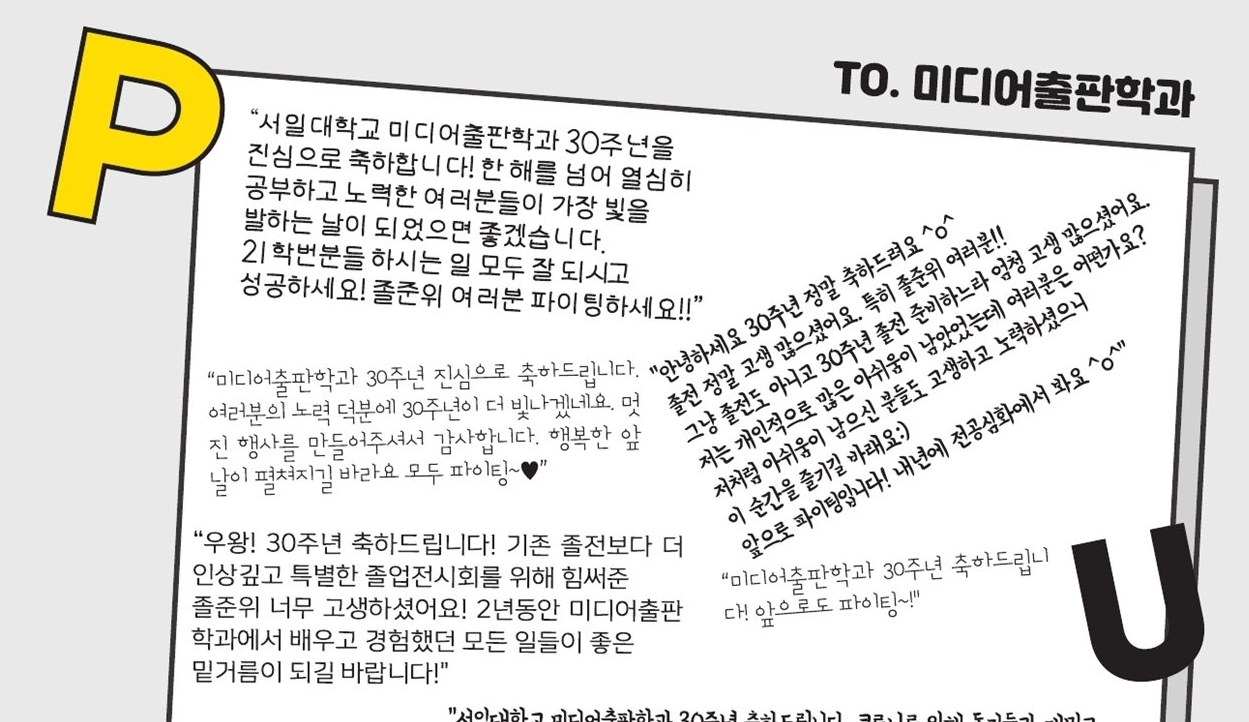 P
TO. 미디어출판학과
“서일대학교 미디어출판학과 30주년을
진심으로 축하합니다! 한 해를 넘어 열심히
공부하고 노력한 여러분들이 가장 빛을
발하는 날이 되었으면 좋겠습니다.
21학번분들 하시는 일 모두 잘 되시고
성공하세요! 졸준위 여러분 파이팅하세요!!”
"안녕하세요 30주년 정말 축하드려요 ^o^
졸전 정말 고생 많으셨어요. 특히 졸준위 여러분!!
그냥 졸전도 아니고 30주년 졸전 준비하느라 엄청 고생 많으셨어요.
저는 개인적으로 많은 아쉬움이 남았었는데 여러분은 어떤가요?
저처럼 아쉬움이 남으신 분들도 고생하고 노력하셨으니
이 순간을 즐기길 바래요:)
앞으로 파이팅입니다! 내년에 전공심화에서 봐요 ^o^"
“미디어출판학과 30주년 진심으로 축하드립니다.
여러분의 노력 덕분에 30주년이 더 빛나겠네요. 멋
진 행사를 만들어주셔서 감사합니다. 행복한 앞
날이 펼쳐지길 바라요 모두 파이팅~♥”
“우왕! 30주년 축하드립니다! 기존 졸전보다 더
인상깊고 특별한 졸업전시회를 위해 힘써준
졸준위 너무 고생하셨어요! 2년동안 미디어출판
학과에서 배우고 경험했던 모든 일들이 좋은
밑거름이 되길 바랍니다!"
“미디어출판학과 30주년 축하드립니
다! 앞으로도 파이팅~!"
U
"서일대학교 미디어출판학과 30주년 축하드립니다. 코로나로 인해 동기들과